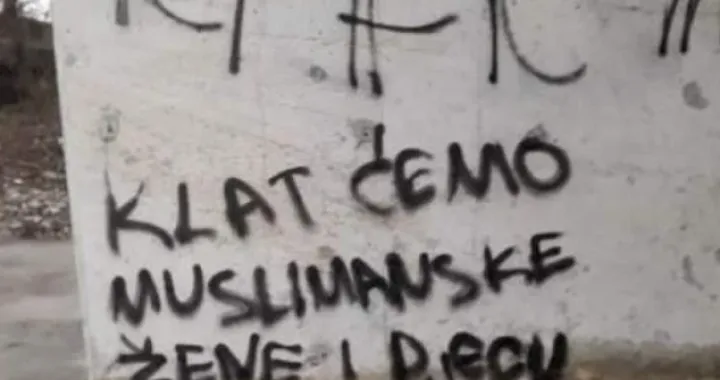 KLAT ĆEMO
MUSLIMANSKE
ŽENE I DJECU